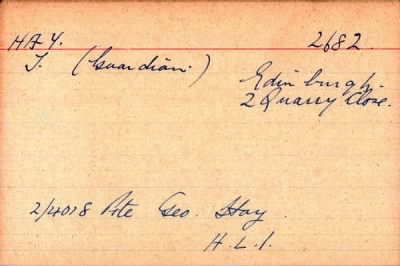 HAY. 2682.
J. (Guardian.) Edinburgh.
2 Quarry Close.
2/4018 Pte Geo. Hay.
H.L.I.